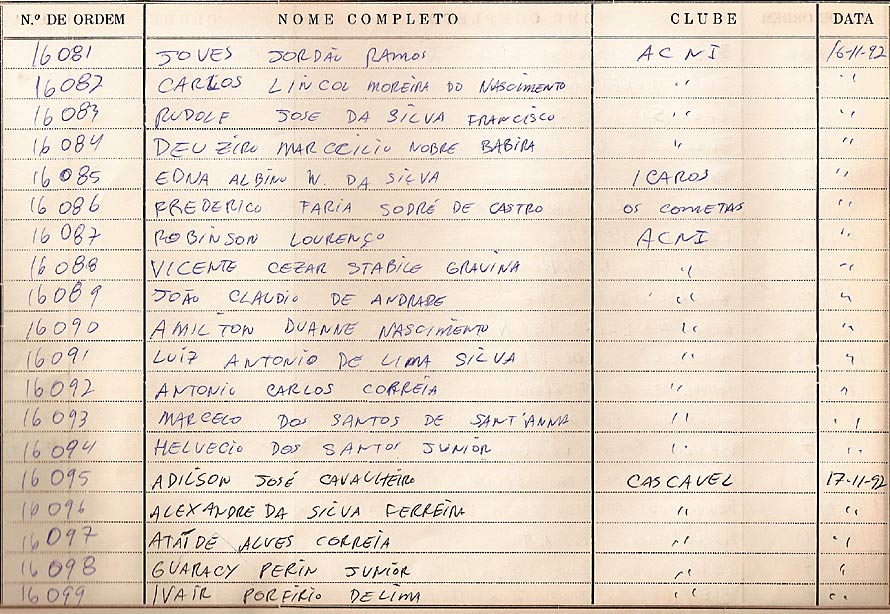 N.º DE ORDEM NOME COMPLETO CLUBE DATA
16081 JOVES JORDÃO RAMOS ACNI 16-11-92
16082 CARLOS LINCOL MOREIRA DO NASCIMENTO " "
16083 RUDOLF JOSE DA SILVA FRANCISCO " "
16084 DEUZIRO MARCCILIO NOBRE BABIRA " "
16085 EDNA ALBINO W. DA SILVA ICAROS "
16086 FREDERICO FARIA SODRÉ DE CASTRO OS COMETAS "
16087 ROBINSON LOURENÇO ACNI "
16088 VICENTE CEZAR STABILE GRAVINA " "
16089 JOÃO CLAUDIO DE ANDRADE " "
16090 AMILTON DUANNE NASCIMENTO " "
16091 LUIZ ANTONIO DE LIMA SILVA " "
16092 ANTONIO CARLOS CORREIA " "
16093 MARCELO DOS SANTOS DE SANT'ANNA " "
16094 HELVECIO DOS SANTOS JUNIOR " "
16095 ADILSON JOSÉ CAVALHEIRO CASCAVEL 17-11-92
16096 ALEXANDRE DA SILVA FERREIRA " "
16097 ATAÍDE ALVES CORREIA " "
16098 GUARACY PERIN JUNIOR " "
16099 IVAIR PORFIRIO DE LIMA " "